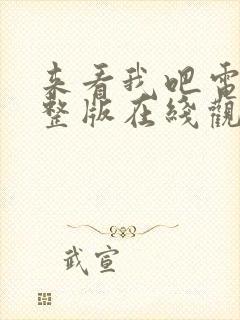 来看我吧電
整版在綫觀
武宣